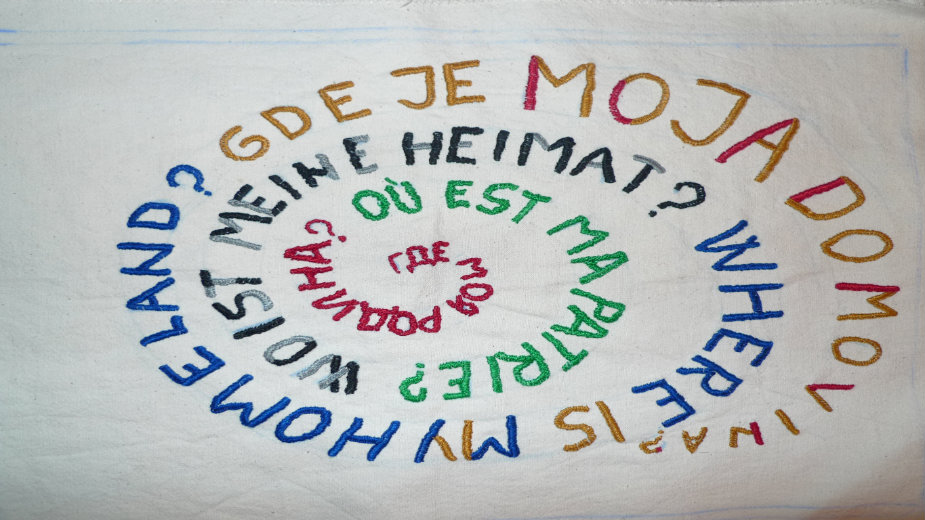 ГДЕ МОЯ РОДИНА?
OÙ EST MA PATRIE?
WO IST MEINE HEIMAT?
WHERE IS MY HOMELAND?
GDE JE MOJA DOMOVINA?